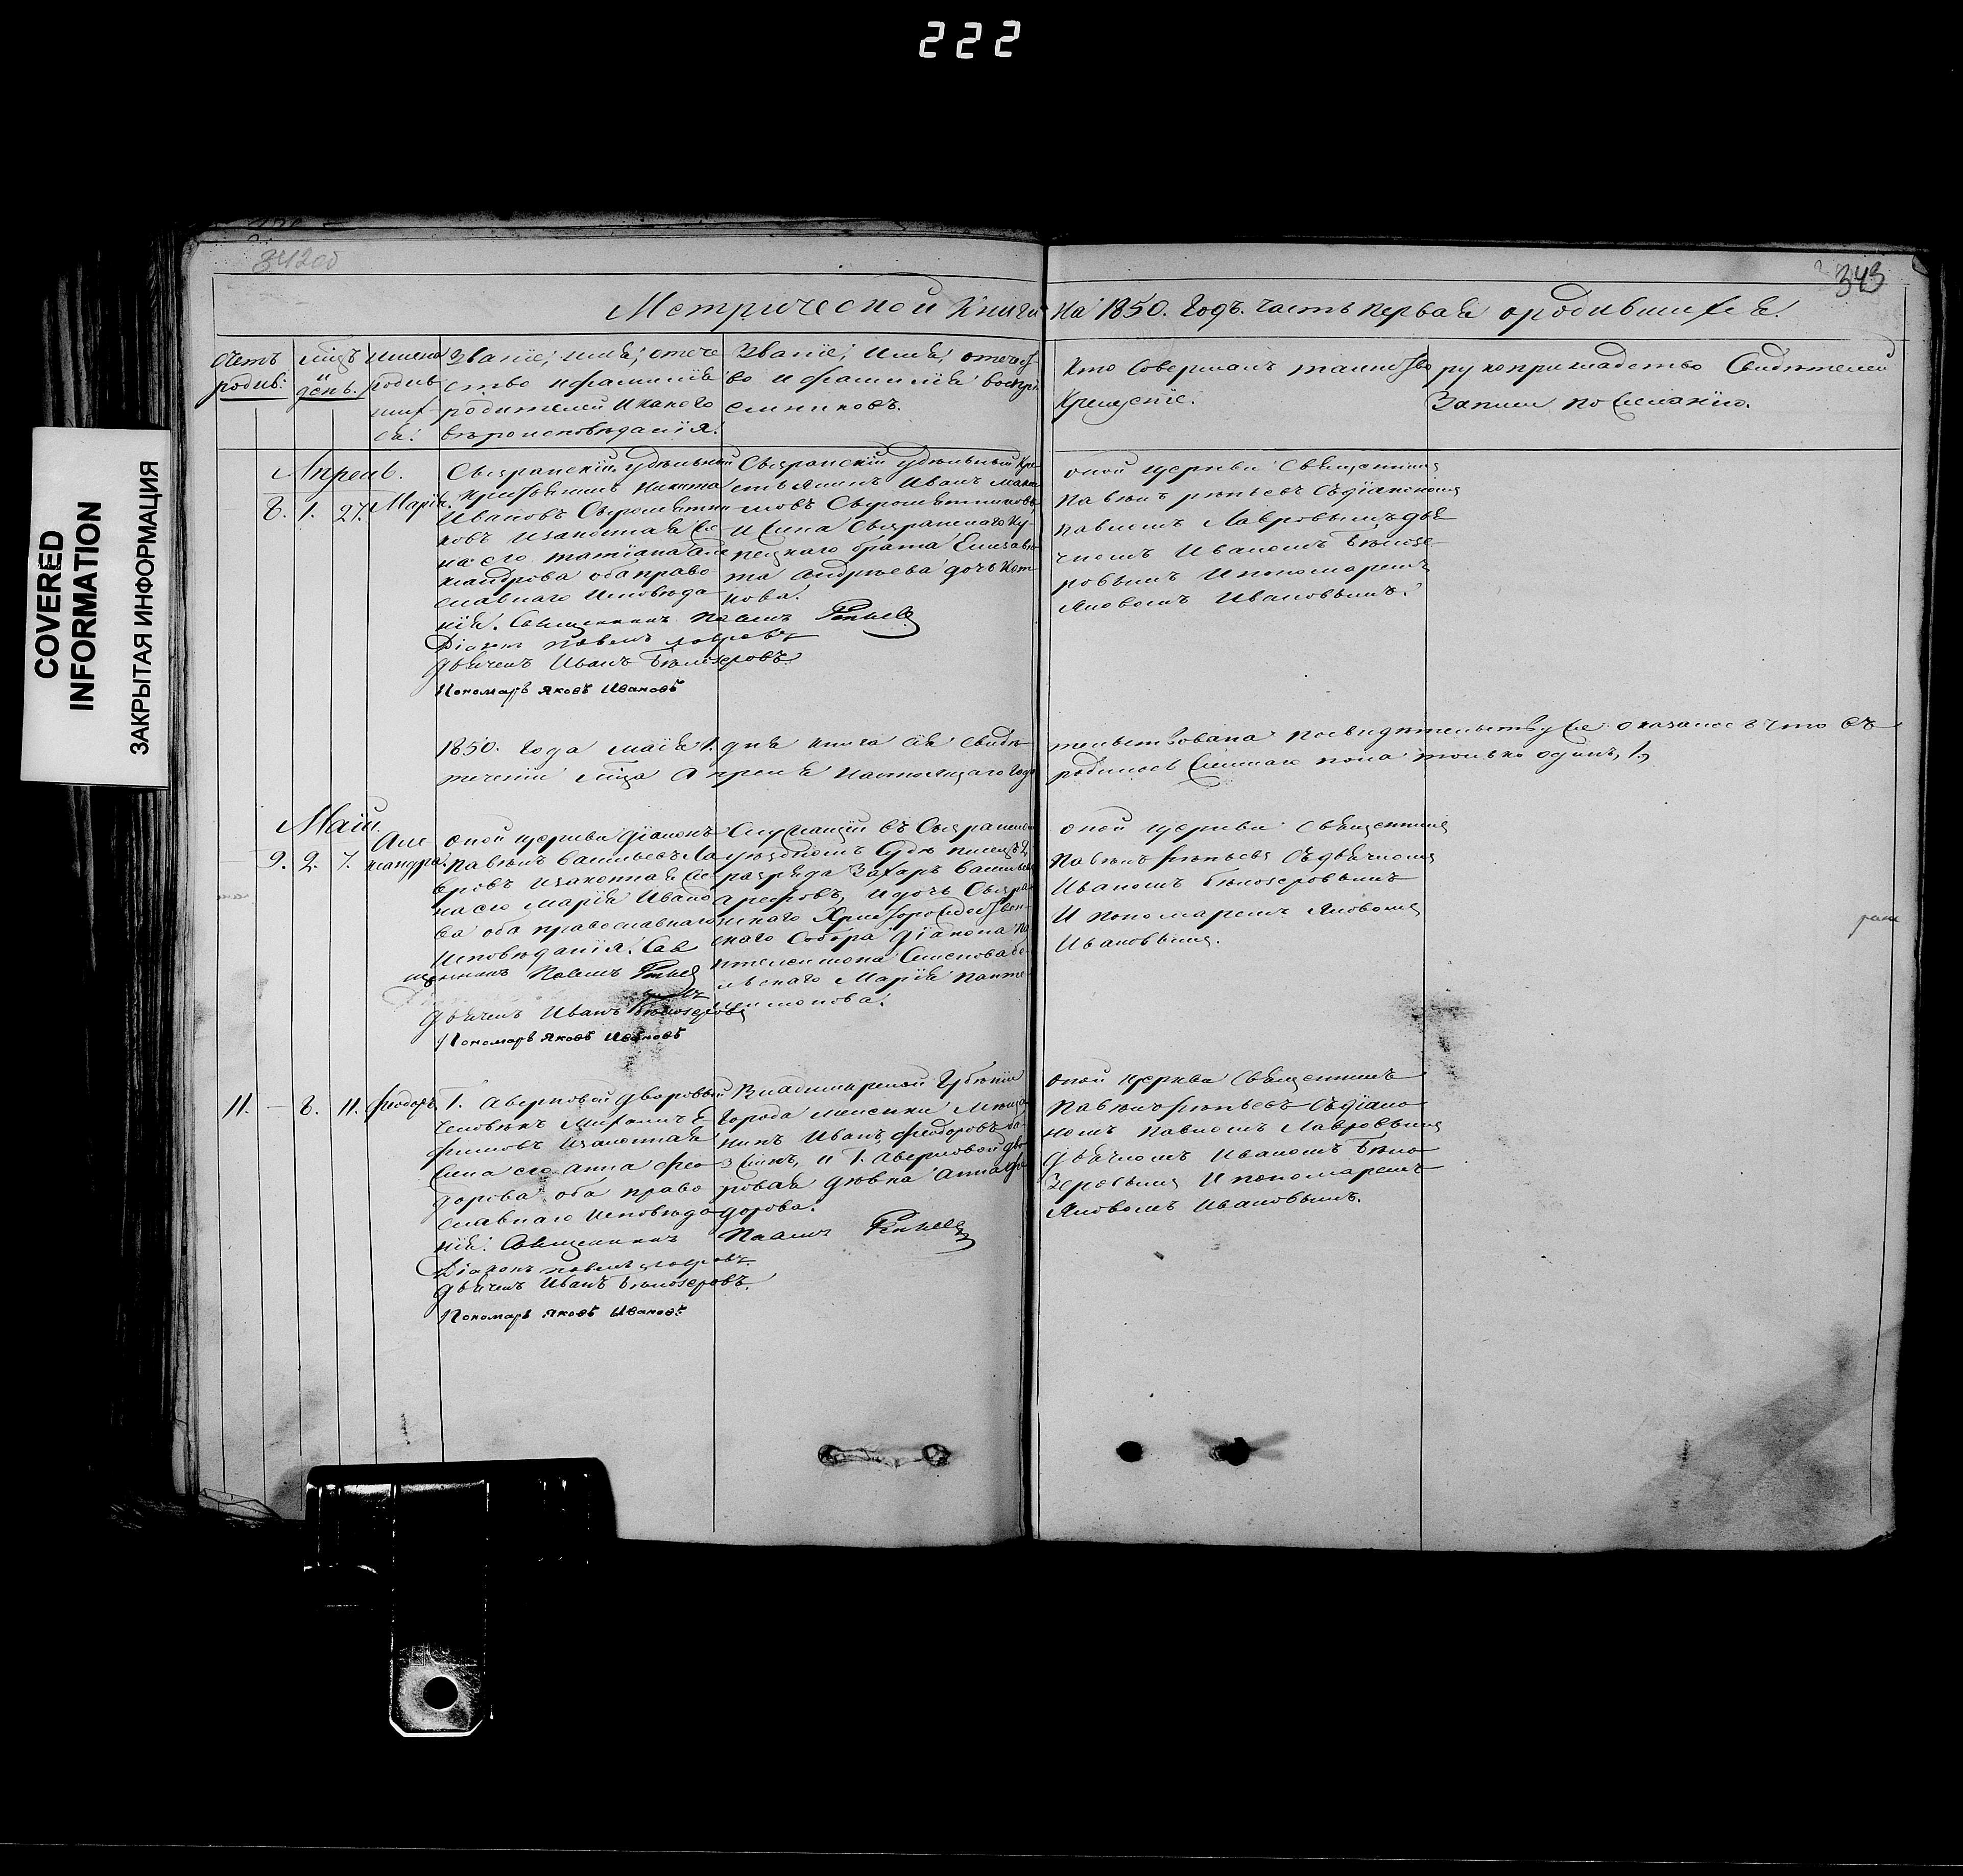 222
COVERED
INFORMATION
ЗАКРЫТАЯ ИНФОРМАЦИЯ
343
Метрической Книги на 1850. Годъ. часть первая о родившихся.
Счетъ родив:
мѣцъ и день.
имена родив шихся:
Званіе, имя, отече
ство и фамилія
родителей и какого
вѣроисповѣданія.
Званіе, имя, отечест
во и фамилія воспрі
емниковъ.
Кто совершалъ таинство
Крещеніе.
рукоприкладство Свидѣтелей
Записи по желанію.
Апрель.
8. 1. 27. Марія.
Сызранскій удѣльной
крестьянинъ Никита
Ивановъ Сыромятни
ковъ и законная Же
на его Татіана Але
ксандрова оба право
славнаго Исповѣда
нія. Священникъ Павелъ
Діаконъ Павелъ Лавровъ
Дьячекъ Иванъ Бѣлозеровъ
Пономарь Яковъ Ивановъ
Сызранскій удѣльный Кре
стьянинъ Иванъ
Сыромятниковъ
и Сызранскаго Ку
пецкаго брата Елизаве
та Андреева дочь
кова.
оной церкви Священникъ
Павелъ Съ діакономъ
Павломъ Лавровымъ дья
чкомъ Иваномъ Бѣлозе
ровымъ и пономаремъ
Яковомъ Ивановымъ.
1850. года маія 1. дня книга сія свидѣ тельствована по свидѣтельству же оказалось что въ
теченіи мѣца Апреля настоящаго года родилось женскаго пола только одинъ, 1,
Маій.
9. 2. 7. Але
ксандра.
оной церкви діаконъ
Павелъ Васильевъ Ла
вровъ и законная Же
на его Марія Ивано
ва оба православнаго
Исповѣданія. Свя
щенникъ Павелъ
Дьячекъ Иванъ Бѣлозеровъ
Пономарь Яковъ Ивановъ
Служащій въ Сызранскомъ
уѣздномъ Судѣ писецъ 2
разряда Захаръ Васильевъ
Арефовъ, и дочь Сызран
скаго Христорождествен
скаго Собора діакона Па
нтелеимона Семенова
Марія Панте
леимонова.
оной церкви Священникъ
Павелъ Съ дьячкомъ
Иваномъ Бѣлозеровымъ
и пономаремъ Яковомъ
Ивановымъ.
11. – 8. 11. Феодоръ.
Г. Аверковой дворовый
человѣкъ Михаилъ Е
фимовъ и законная
Жена его Анна Фео
дорова оба право
славнаго Исповѣда
нія. Священникъ Павелъ
Діаконъ Павелъ Лавровъ
Дьячекъ Иванъ Бѣлозеровъ.
Пономарь Яковъ Ивановъ.
Владимирской Губерніи
Города Меленки Мѣща
нинъ Иванъ Феодоровъ
и Г. Аверковой дво
ровая дѣвка Анна
дорова.
оной церкви Священникъ
Павелъ Съ діако
номъ Павломъ Лавровымъ
Дьячкомъ Иваномъ Бѣло
зеровымъ и пономаремъ
Яковомъ Ивановымъ.